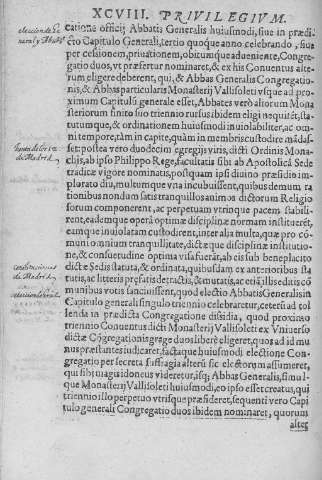 XCVIII. PRIVILEGIVM.
catione officij Abbatis Generalis huiusmodi, siue in prædi
cto Capitulo Generali, tertio quoque anno celebrando, siue
per cessionem, priuationem, obitumque adueniente, Congre
gatio duos, vt præfertur nominaret, & ex his Conuentus alte
rum eligere deberent, qui, & Abbas Generalis Congregatio
nis, & Abbas particularis Monasterij Vallisoleti vsque ad pro
ximum Capitulũ generale esset, Abbates verò aliorum Mona
steriorum finito suo triennio rursus ibidem eligi nequirẽt, sta
tutumque, & ordinationem huiusmodi inuiolabiliter, ac om
ni tempore, tàm in capite, quàm in membris custodire mãdas
set: postea verò duodecim egregijs viris, dicti Ordinis Mona
chis, ab ipso Philippo Rege, facultatis sibi ab Apostolica Sede
traditæ vigore nominatis, postquam ipsi diuino præsidio im
plorato diu, multumque vna incubuissent, quibus demum ra
tionibus nondum satis tranquillos animos dictorum Religio
forum componerent, ac perpetuam vtrinque pacem stabili-
rent, eademque opera optimæ disciplinæ normam instituerẽt,
eamque inuiolatam custodirent, inter alia multa, quæ pro cõ
muni omnium tranquillitate, dictæque disciplinæ institutio-
ne, & consuetudine optima visa fuerãt, ab eis sub beneplacito
dictæ Sedis statuta, & ordinata, quibusdam ex anterioribus sta
tutis, ac litteris præfatis detractis, & mutatis, ac etiã illis editis cõ
munibus votis sanciuissent, quod electio Abbatis Generalis in
Capitulo generali singulo triennio celebraretur, ceterũ ad tol
lenda in prædicta Congregatione dissidia, quod proximo
triennio Conuentus dicti Monasterij Vallisoleti ex Vniuerso
dictæ Congregationis grege duos liberè eligeret, quos ad id mu
nus præstantes iudicaret, factaque huiusmodi electione Con-
gregatio per secreta suffragia alterũ sic electorum assumeret,
qui sibi magis idoneus videretur, isq; Abbas Generalis, simul-
que Monasterij Vallisoleti huiusmodi, eo ipso esset creatus, qui
triennio illo perpetuo vtrisque præsideret, sequenti verò Capi
tulo generali Congregatio duos ibidem nominaret, quorum
alter